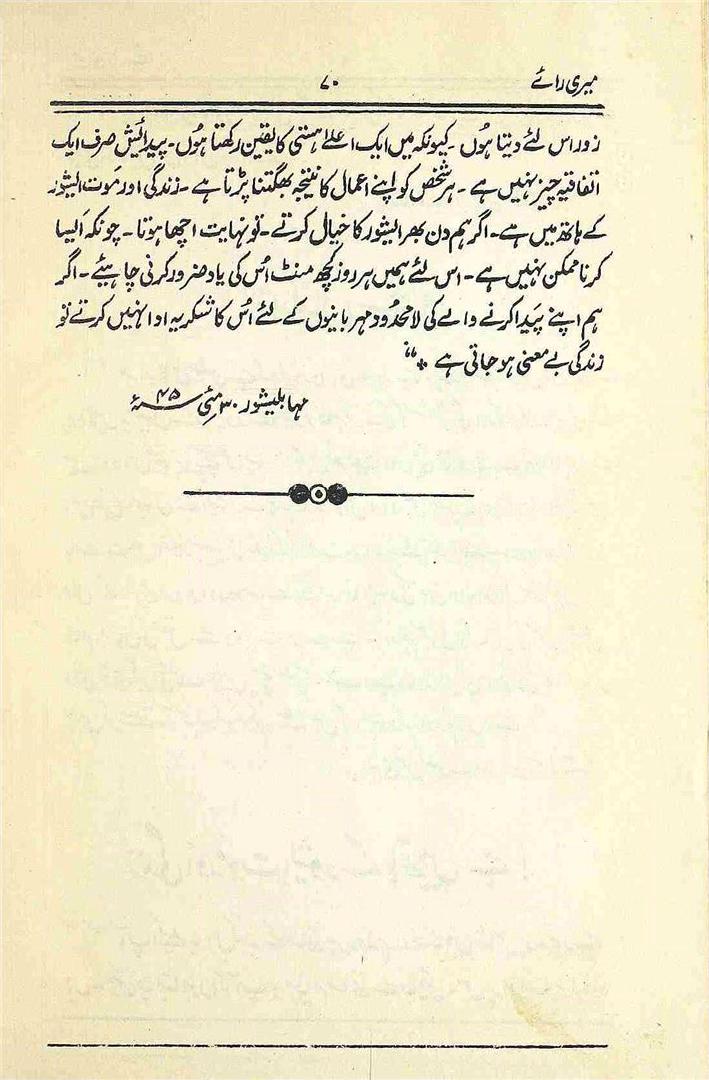 میری رائے ۷۰
زور اس لئے دیتا ہُوں۔ کیونکہ میں ایک اعلےٰ ہستی کا یقین رکھتا ہُوں۔ پیدائش صرف ایک
اتفاقیہ چیز نہیں ہے۔ ہر شخص کو اپنے اعمال کا نتیجہ بھگتنا پڑتا ہے۔ زندگی اور مَوت ایشور
کے ہاتھ میں ہے۔ اگر ہم دن بھر ایشور کا خیال کرتے۔ تو نہایت اچھا ہوتا۔ چونکہ اَیسا
کرنا ممکن نہیں ہے۔ اس لئے ہمیں ہر روز کچھ منٹ اُس کی یاد ضرور کرنی چاہیئے۔ اگر
ہم اپنے پَیدا کرنے والے کی لامحدود مہربانیوں کے لئے اُس کا شکریہ ادا نہیں کرتے تو
زندگی بے معنی ہو جاتی ہے *“
مہابلیشور ۳۰ مئی ۴۵ء